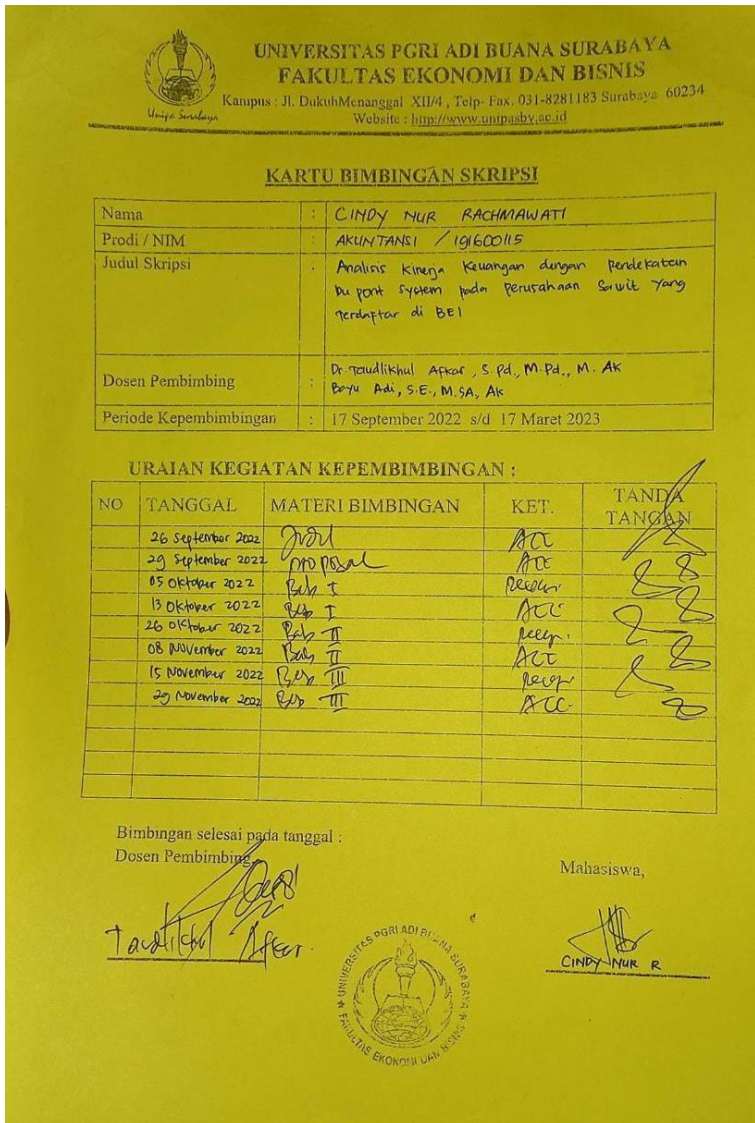 UNIVERSITAS PGRI ADI BUANA SURABAYA
FAKULTAS EKONOMI DAN BISNIS
Kampus : Jl. DukuhMenanggal XII/4 , Telp- Fax. 031-8281183 Surabaya 60234
Website : http://www.unipasby.ac.id
Unipa Surabaya
KARTU BIMBINGAN SKRIPSI
Nama : CINDY NUR RACHMAWATI
Prodi / NIM : AKUNTANSI / 191600115
Judul Skripsi : Analisis Kinerja Keuangan dengan pendekatan
Du pont System pada perusahaan Sawit Yang
Terdaftar di BEI
Dosen Pembimbing : Dr. Taudlikhul Afkar, S.Pd., M.Pd., M.Ak
Bayu Adi, S.E., M.SA, Ak
Periode Kepembimbingan : 17 September 2022 s/d 17 Maret 2023
URAIAN KEGIATAN KEPEMBIMBINGAN :
NO TANGGAL MATERI BIMBINGAN KET. TANDA TANGAN
26 September 2022 Judul ACC
29 September 2022 proposal ACC
05 Oktober 2022 Bab I
13 Oktober 2022 Bab I ACC
26 Oktober 2022 Bab II
08 November 2022 Bab II ACC
15 November 2022 Bab III
29 November 2022 Bab III ACC
Bimbingan selesai pada tanggal :
Dosen Pembimbing,
Mahasiswa,
Taudlikhul Afkar.
CINDY NUR R
UNIVERSITAS PGRI ADI BUANA SURABAYA
FAKULTAS EKONOMI DAN BISNIS